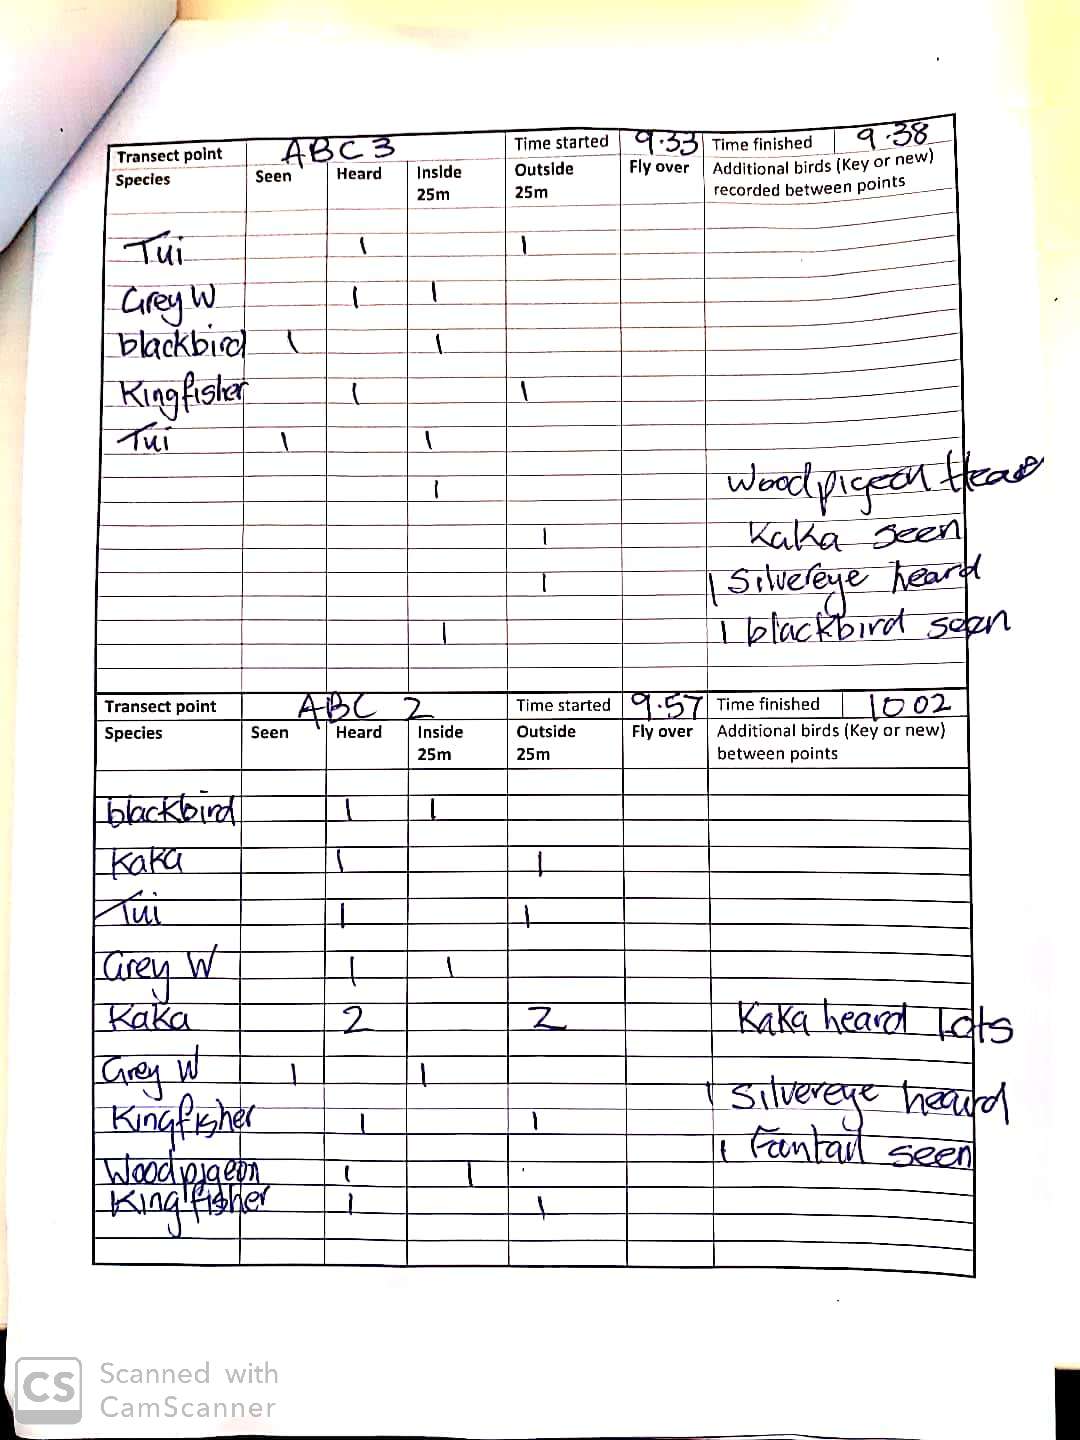 Transect point ABC3 Time started 9.33 Time finished 9.38
Species Seen Heard Inside 25m Outside 25m Fly over Additional birds (Key or new) recorded between points
Tui 1 1
Grey W 1 1
blackbird 1 1
Kingfisher 1 1
Tui 1 1
1 Woodpigeon
1 Kaka seen
1 1 Silvereye heard
1 1 blackbird seen
Transect point ABC 2 Time started 9.57 Time finished 10 02
Species Seen Heard Inside 25m Outside 25m Fly over Additional birds (Key or new) between points
blackbird 1 1
Kaka 1 1
Tui 1 1
Grey W 1 1
Kaka 2 2 Kaka heard Lots
Grey W 1 1
1 Silvereye heard
Kingfisher 1 1
1 Fantail seen
Woodpigeon 1 1
Kingfisher 1 1
CS Scanned with
CamScanner